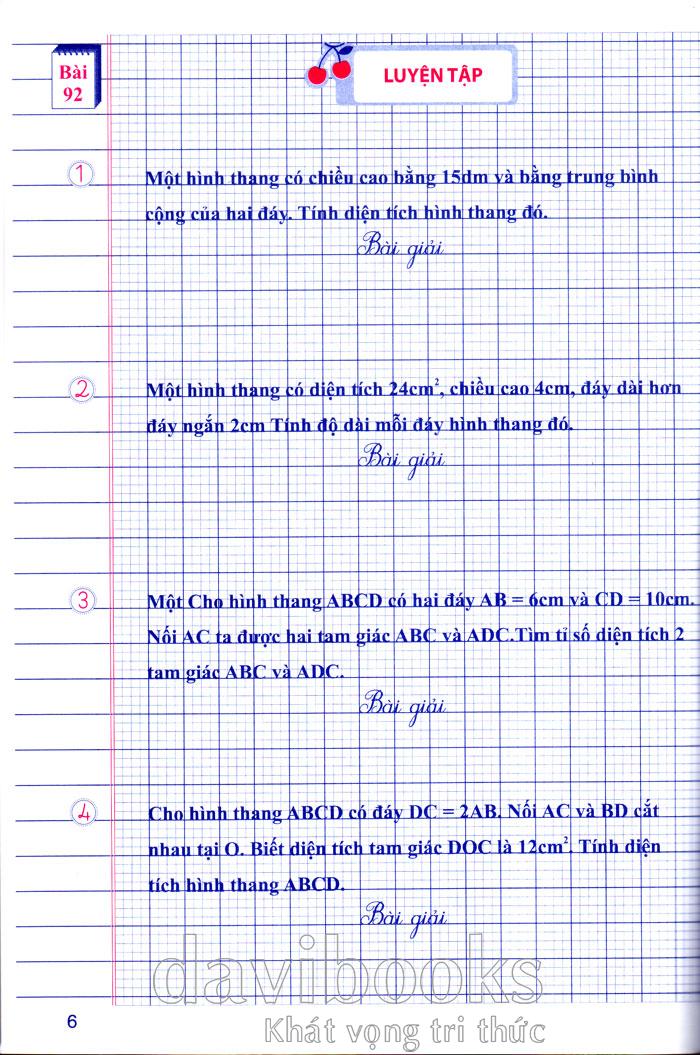 Bài
92
LUYỆN TẬP
1
Một hình thang có chiều cao bằng 15dm và bằng trung bình
cộng của hai đáy. Tính diện tích hình thang đó.
Bài giải
2
Một hình thang có diện tích 24cm², chiều cao 4cm, đáy dài hơn
đáy ngắn 2cm Tính độ dài mỗi đáy hình thang đó.
Bài giải
3
Một Cho hình thang ABCD có hai đáy AB = 6cm và CD = 10cm.
Nối AC ta được hai tam giác ABC và ADC.Tìm tỉ số diện tích 2
tam giác ABC và ADC.
Bài giải
4
Cho hình thang ABCD có đáy DC = 2AB. Nối AC và BD cắt
nhau tại O. Biết diện tích tam giác DOC là 12cm². Tính diện
tích hình thang ABCD.
Bài giải
davibooks
Khát vọng tri thức
6